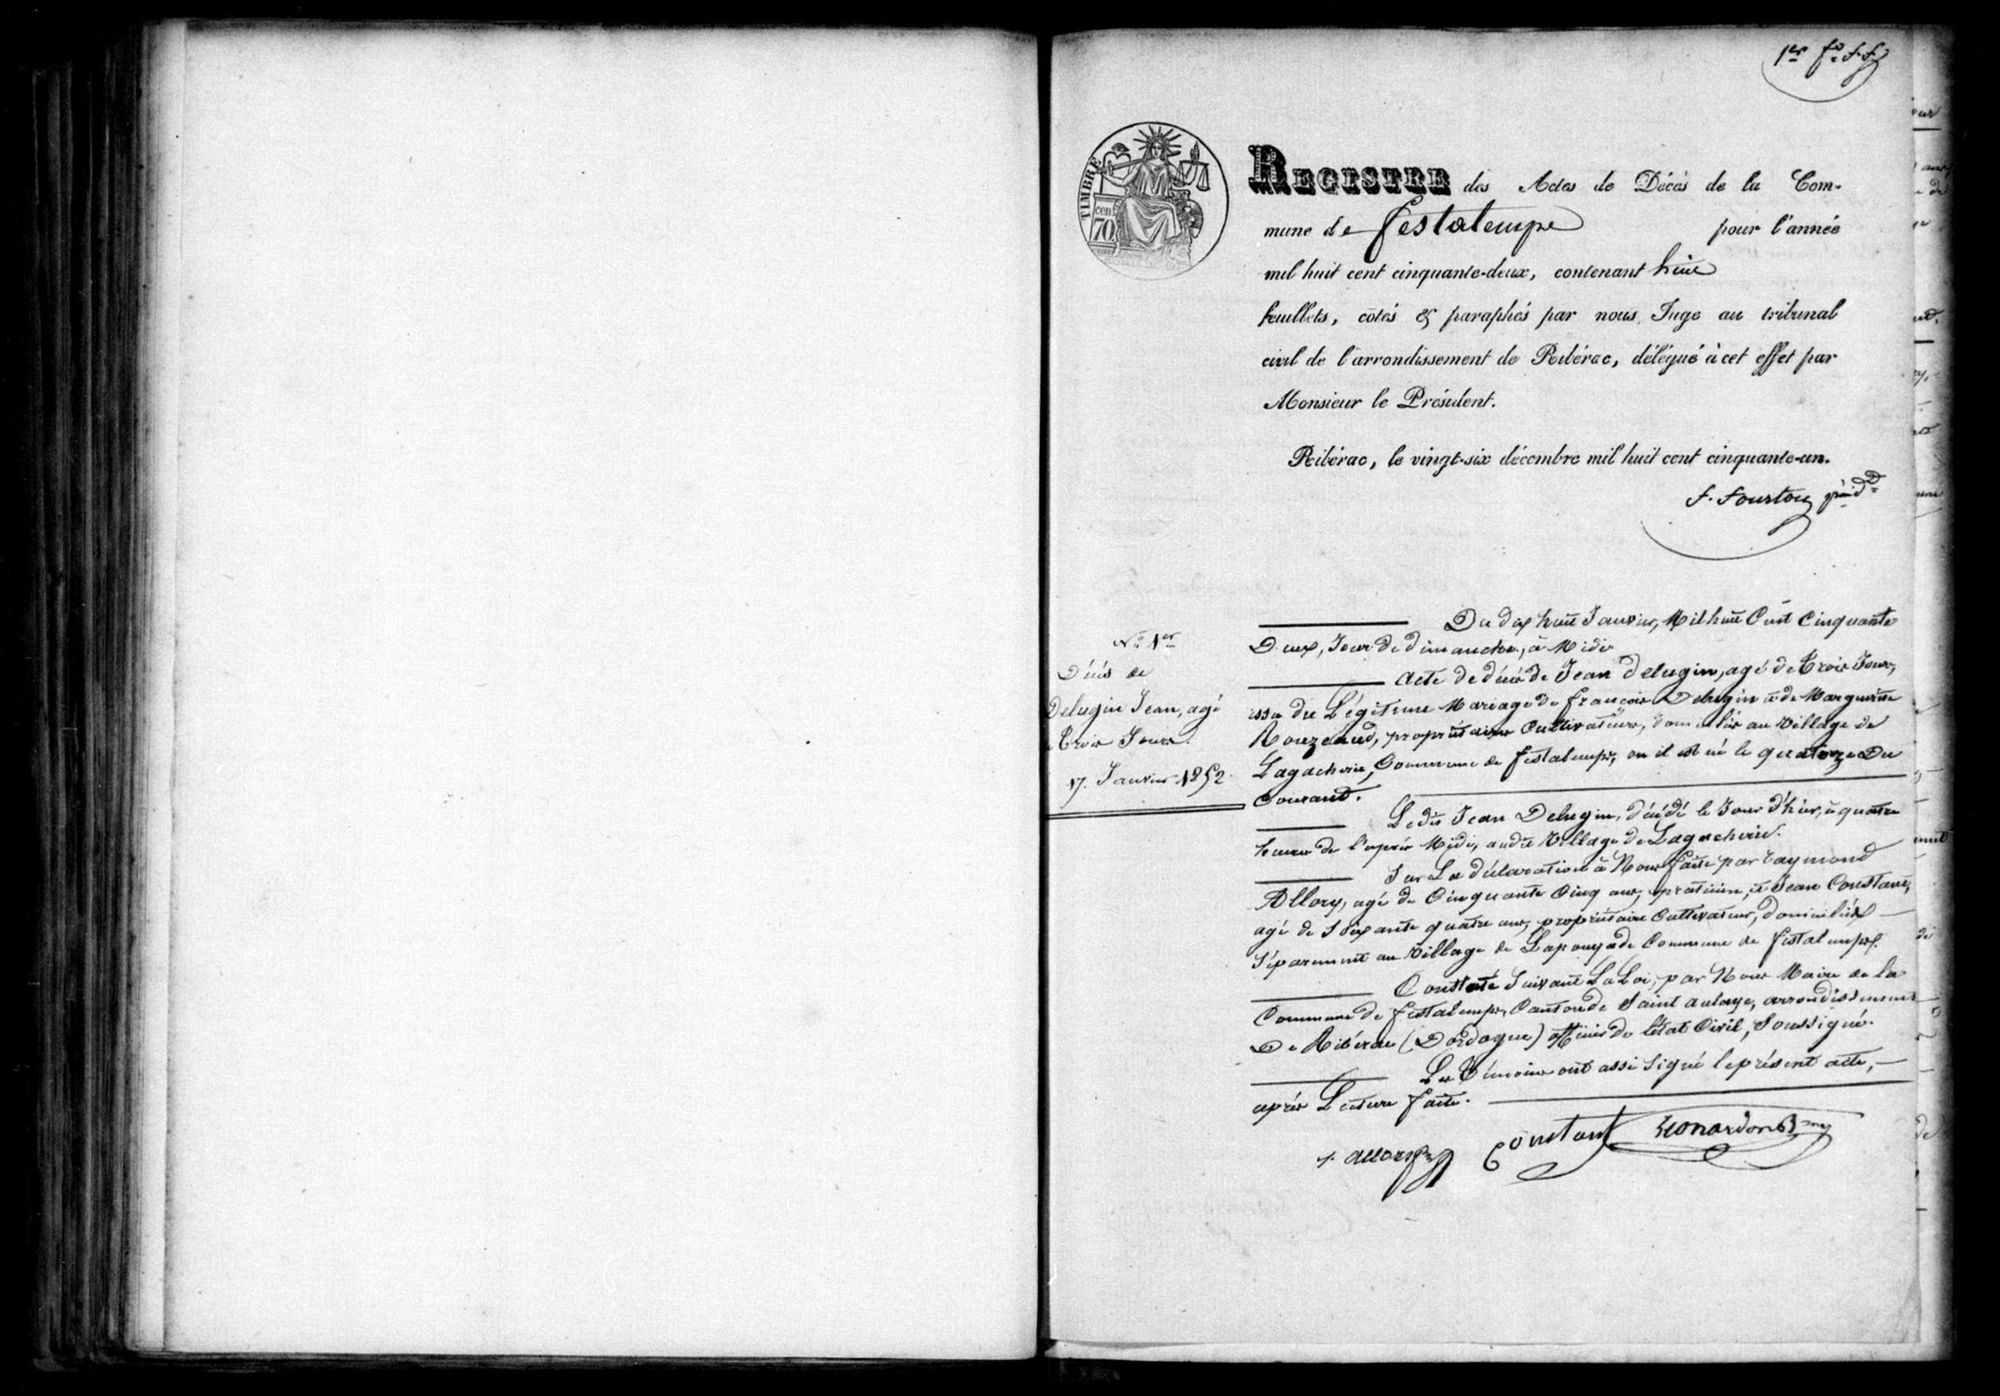 1er fo F.F.
TIMBRE
cen
70
REGISTRE des Actes de Décès de la Com-
mune de Festalemps pour l'année
mil huit cent cinquante-deux, contenant huit
feuillets, côtés & paraphés par nous, Juge au tribunal
civil de l'arrondissement de Ribérac, délégué à cet effet par
Monsieur le Président.
Ribérac, le vingt-six décembre mil huit cent cinquante-un.
F. Fourtou
No 1er
Décès de
Delugin Jean, agé
de Trois Jours.
17. Janvier 1852.
Du dix huit Janvier, Mil huit Cent Cinquante
Deux, Jour de dimanche, à Midi
Acte de décès de Jean Delugin, agé de Trois Jours,
issu du Légitime Mariage de François Delugin et de Marguerite
Rouzeaud, propriétaires Cultivateurs, domiciliés au Village de
Lagacherie, Commune de Festalemps, ou il est né le quatorze Du
Courant.
Ledit Jean Delugin, décédé le Jour d'hier, à quatre
heures de l'après Midi, audit Village de Lagacherie.
Sur La déclaration à Nous faite par Raymond
Allory, agé de Cinquante Cinq ans, praticien, et Jean Constant,
agé de Soixante quatre ans, propriétaire Cultivateur, domiciliés
Séparement au Village de Lapouyade Commune de Festalemps.
Constaté Suivant La Loi, par Nous Maire de la
Commune de Festalemps, Canton de Saint aulaye, arrondissement
De Ribérac (Dordogne) officier de l'état Civil, Soussigné.
Les Témoins ont assi Signé le présent acte,
après Lecture faite.
Allory Constant Leonardon